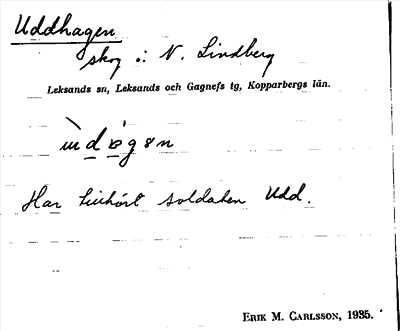 Uddhagen
skog i: N. Lindberg
Leksands sn, Leksands och Gagnefs tg, Kopparbergs län.
Har tillhört soldaten Udd.
ERIK M. CARLSSON, 1935.